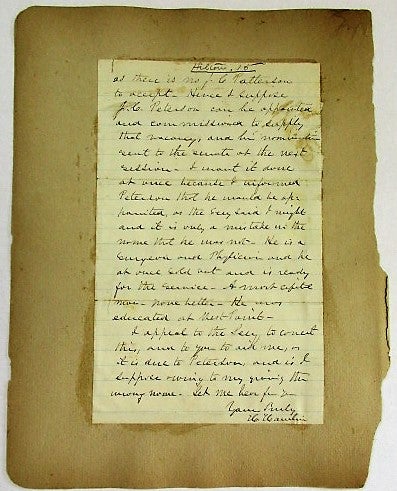 as there is no J. C. Patterson
to accept - Hence I suppose
J. C. Peterson can be appointed
and commissioned to supply
that vacancy, and his nomination
sent to the senate at the next
session - I want it done
at once because I informed
Peterson that he would be ap-
pointed, as the Secy said I might
and it is only a mistake in the
name that he was not - He is a
Surgeon and Physician and he
at once sold out and is ready
for the service - A most capital
man - none better - He was
educated at West Point -
I appeal to the Secy, to correct
this, and to you to aid me, as
it is due to Peterson, and is I
suppose owing to my giving the
wrong name - Let me hear fr you
Yours Truly
H. Hamlin